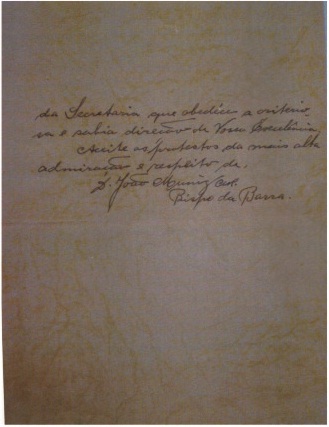 da Secretaria que obedéce a criterio-
sa e sabia direcção de Vossa Excelência.
Aceite os protestos da mais alta
admiração e respeito de.
D. João Muniz
Bispo da Barra.